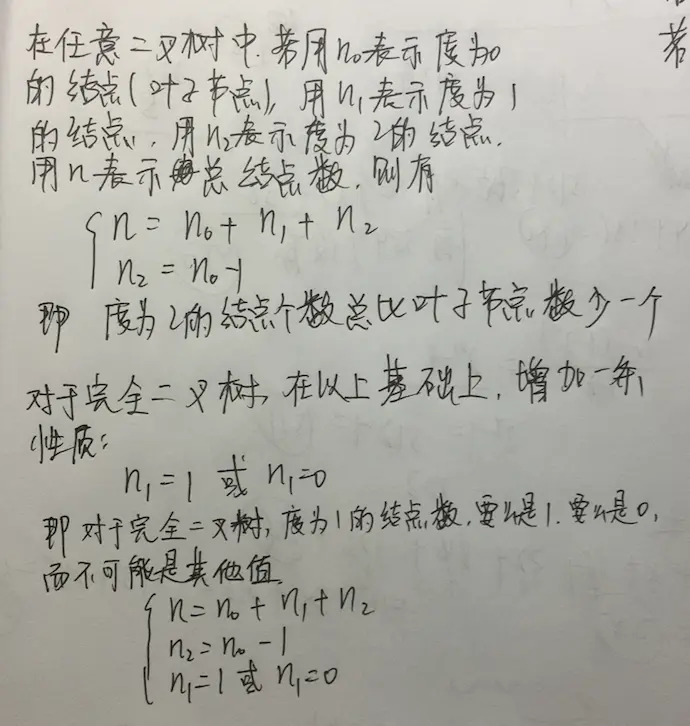 在任意二叉树中.若用n₀表示度为0
的结点(叶子节点),用n₁表示度为1
的结点,用n₂表示度为2的结点.
用n表示总结点数.则有
n = n₀ + n₁ + n₂
n₂ = n₀-1
即 度为2的结点个数总比叶子节点数少一个
对于完全二叉树,在以上基础上,增加一条
性质:
n₁=1 或 n₁=0
即对于完全二叉树,度为1的结点数,要么是1.要么是0,
而不可能是其他值.
n = n₀ + n₁ + n₂
n₂ = n₀ -1
n₁=1 或 n₁=0
若